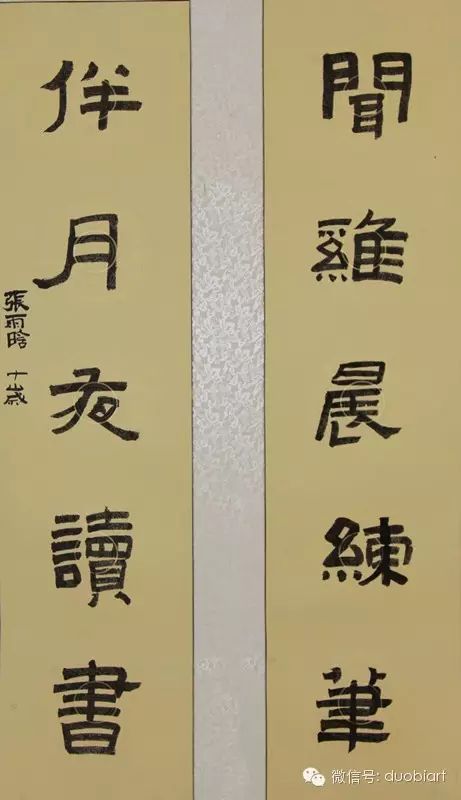 聞雞晨練筆
伴月夜讀書
張雨晗 十歲
微信号: duobiarf